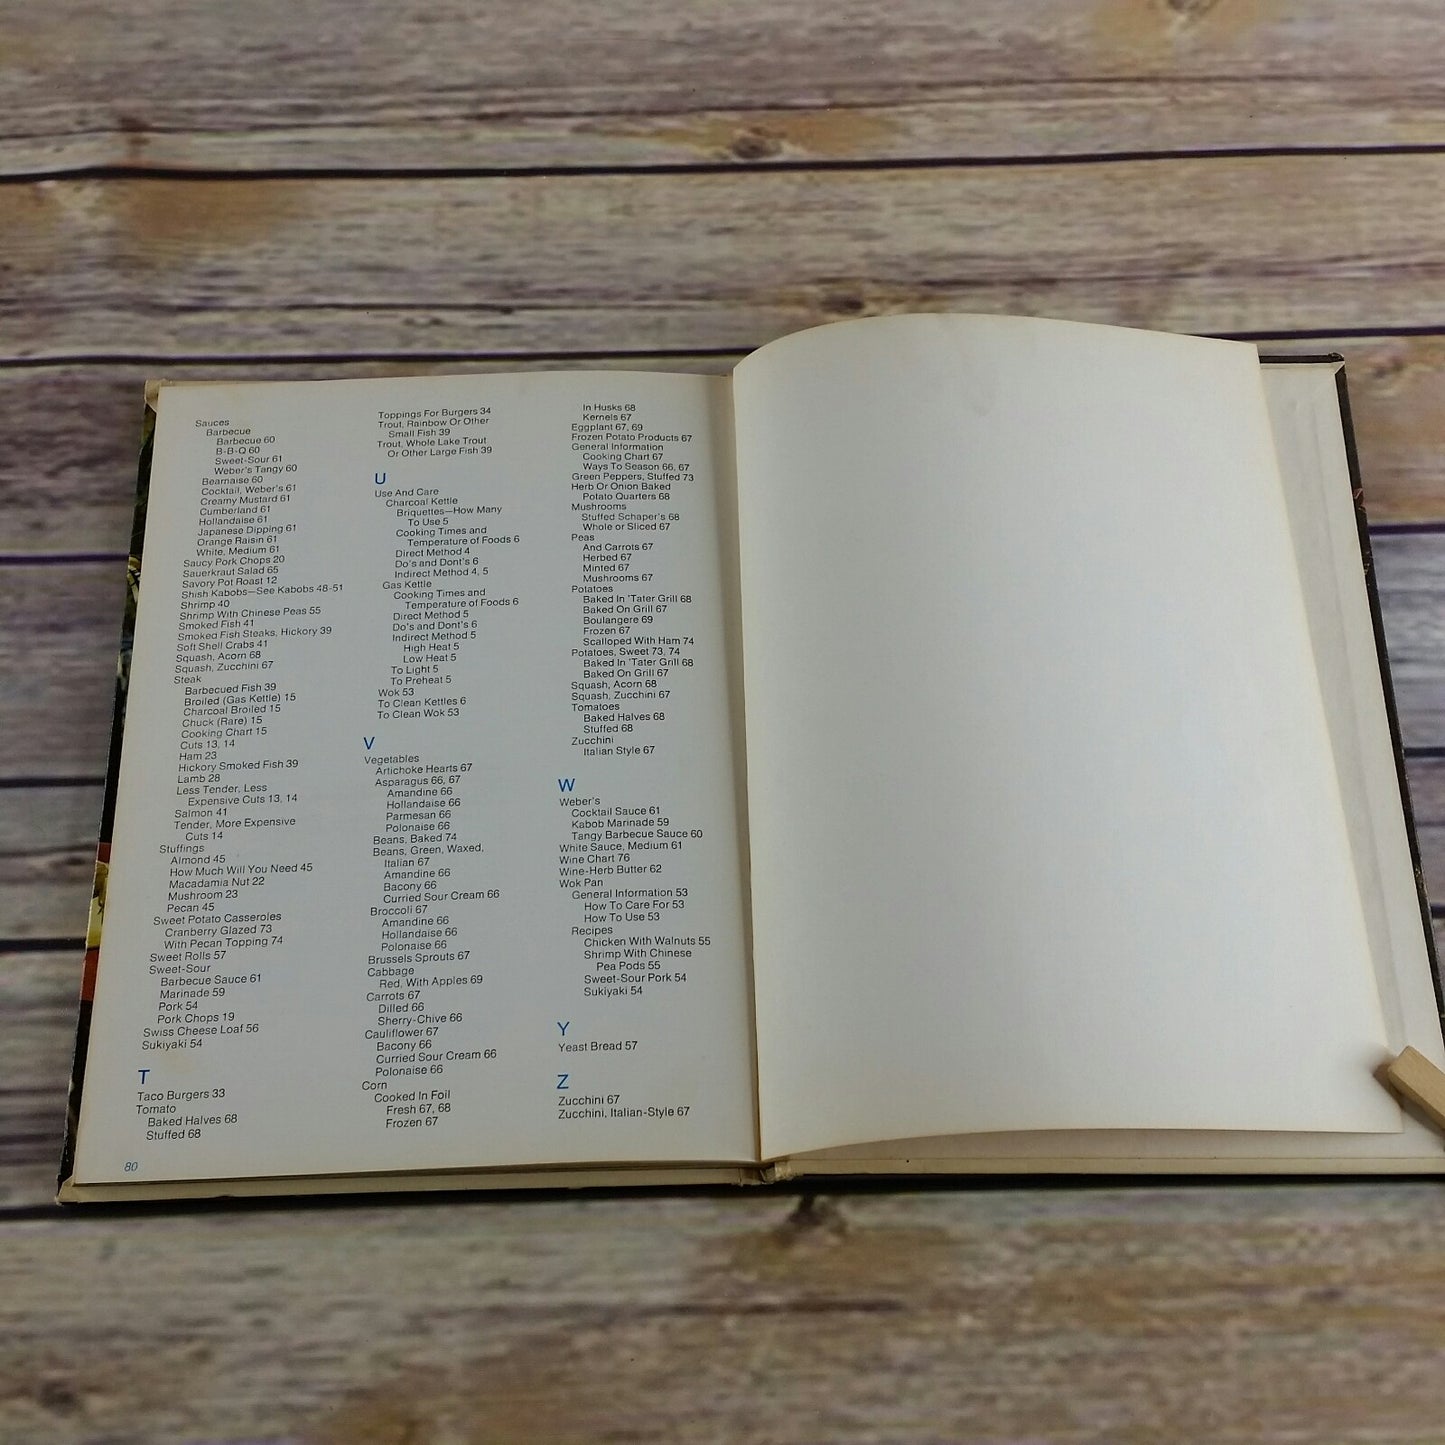 Sauces
Barbecue
Barbecue 60
B-B-Q 60
Sweet-Sour 61
Weber's Tangy 60
Bearnaise 60
Cocktail, Weber's 61
Creamy Mustard 61
Cumberland 61
Hollandaise 61
Japanese Dipping 61
Orange Raisin 61
White, Medium 61
Saucy Pork Chops 20
Sauerkraut Salad 65
Savory Pot Roast 12
Shish Kabobs—See Kabobs 48-51
Shrimp 40
Shrimp With Chinese Peas 55
Smoked Fish 41
Smoked Fish Steaks, Hickory 39
Soft Shell Crabs 41
Squash, Acorn 68
Squash, Zucchini 67
Steak
Barbecued Fish 39
Broiled (Gas Kettle) 15
Charcoal Broiled 15
Chuck (Rare) 15
Cooking Chart 15
Cuts 13, 14
Ham 23
Hickory Smoked Fish 39
Lamb 28
Less Tender, Less
Expensive Cuts 13, 14
Salmon 41
Tender, More Expensive
Cuts 14
Stuffings
Almond 45
How Much Will You Need 45
Macadamia Nut 22
Mushroom 23
Pecan 45
Sweet Potato Casseroles
Cranberry Glazed 73
With Pecan Topping 74
Sweet Rolls 57
Sweet-Sour
Barbecue Sauce 61
Marinade 59
Pork 54
Pork Chops 19
Swiss Cheese Loaf 56
Sukiyaki 54
T
Taco Burgers 33
Tomato
Baked Halves 68
Stuffed 68
80
Toppings For Burgers 34
Trout, Rainbow Or Other
Small Fish 39
Trout, Whole Lake Trout
Or Other Large Fish 39
U
Use And Care
Charcoal Kettle
Briquettes—How Many
To Use 5
Cooking Times and
Temperature of Foods 6
Direct Method 4
Do's and Dont's 6
Indirect Method 4, 5
Gas Kettle
Cooking Times and
Temperature of Foods 6
Direct Method 5
Do's and Dont's 6
Indirect Method 5
High Heat 5
Low Heat 5
To Light 5
To Preheat 5
Wok 53
To Clean Kettles 6
To Clean Wok 53
V
Vegetables
Artichoke Hearts 67
Asparagus 66, 67
Amandine 66
Hollandaise 66
Parmesan 66
Polonaise 66
Beans, Baked 74
Beans, Green, Waxed,
Italian 67
Amandine 66
Bacony 66
Curried Sour Cream 66
Broccoli 67
Amandine 66
Hollandaise 66
Polonaise 66
Brussels Sprouts 67
Cabbage
Red, With Apples 69
Carrots 67
Dilled 66
Sherry-Chive 66
Cauliflower 67
Bacony 66
Curried Sour Cream 66
Polonaise 66
Corn
Cooked In Foil
Fresh 67, 68
Frozen 67
In Husks 68
Kernels 67
Eggplant 67, 69
Frozen Potato Products 67
General Information
Cooking Chart 67
Ways To Season 66, 67
Green Peppers, Stuffed 73
Herb Or Onion Baked
Potato Quarters 68
Mushrooms
Stuffed Schaper's 68
Whole or Sliced 67
Peas
And Carrots 67
Herbed 67
Minted 67
Mushrooms 67
Potatoes
Baked In 'Tater Grill 68
Baked On Grill 67
Boulangere 69
Frozen 67
Scalloped With Ham 74
Potatoes, Sweet 73, 74
Baked In 'Tater Grill 68
Baked On Grill 67
Squash, Acorn 68
Squash, Zucchini 67
Tomatoes
Baked Halves 68
Stuffed 68
Zucchini
Italian Style 67
W
Weber's
Cocktail Sauce 61
Kabob Marinade 59
Tangy Barbecue Sauce 60
White Sauce, Medium 61
Wine Chart 76
Wine-Herb Butter 62
Wok Pan
General Information 53
How To Care For 53
How To Use 53
Recipes
Chicken With Walnuts 55
Shrimp With Chinese
Pea Pods 55
Sweet-Sour Pork 54
Sukiyaki 54
Y
Yeast Bread 57
Z
Zucchini 67
Zucchini, Italian-Style 67